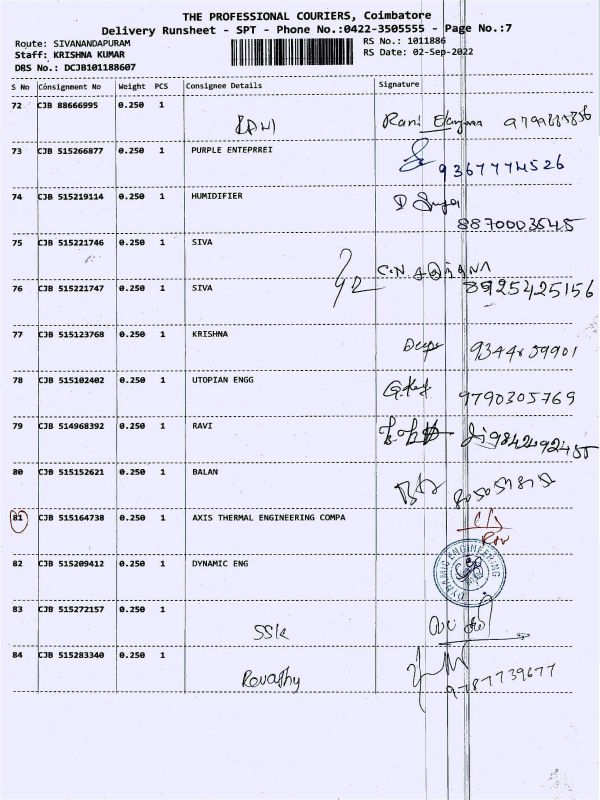 THE PROFESSIONAL COURIERS, Coimbatore
Delivery Runsheet - SPT - Phone No.:0422-3505555 - Page No.:7
Route: SIVANANDAPURAM
RS No.: 1011886
Staff: KRISHNA KUMAR
RS Date: 02-Sep-2022
DRS No.: DCJB101188607
S No Consignment No Weight PCS Consignee Details Signature
72 CJB 88666995 0.250 1 RANI Rani
73 CJB 515266877 0.250 1 PURPLE ENTEPRREI
9367774526
74 CJB 515219114 0.250 1 HUMIDIFIER
8870003545
75 CJB 515221746 0.250 1 SIVA
76 CJB 515221747 0.250 1 SIVA 8925425156
77 CJB 515123768 0.250 1 KRISHNA
78 CJB 515102402 0.250 1 UTOPIAN ENGG
9790305769
79 CJB 514968392 0.250 1 RAVI
80 CJB 515152621 0.250 1 BALAN
81 CJB 515164738 0.250 1 AXIS THERMAL ENGINEERING COMPA
82 CJB 515209412 0.250 1 DYNAMIC ENG
DYNAMIC ENGINEERING
83 CJB 515272157 0.250 1
SSK
84 CJB 515283340 0.250 1
Revathy 9787739677